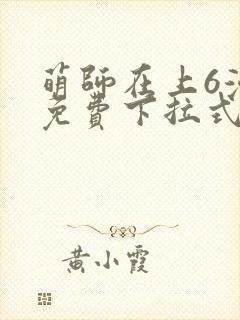 萌師在上6
免費下拉式
黃小霞